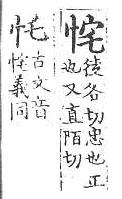 㤞
徒各切忠也正
也又直陌切
古文音
㤞義同